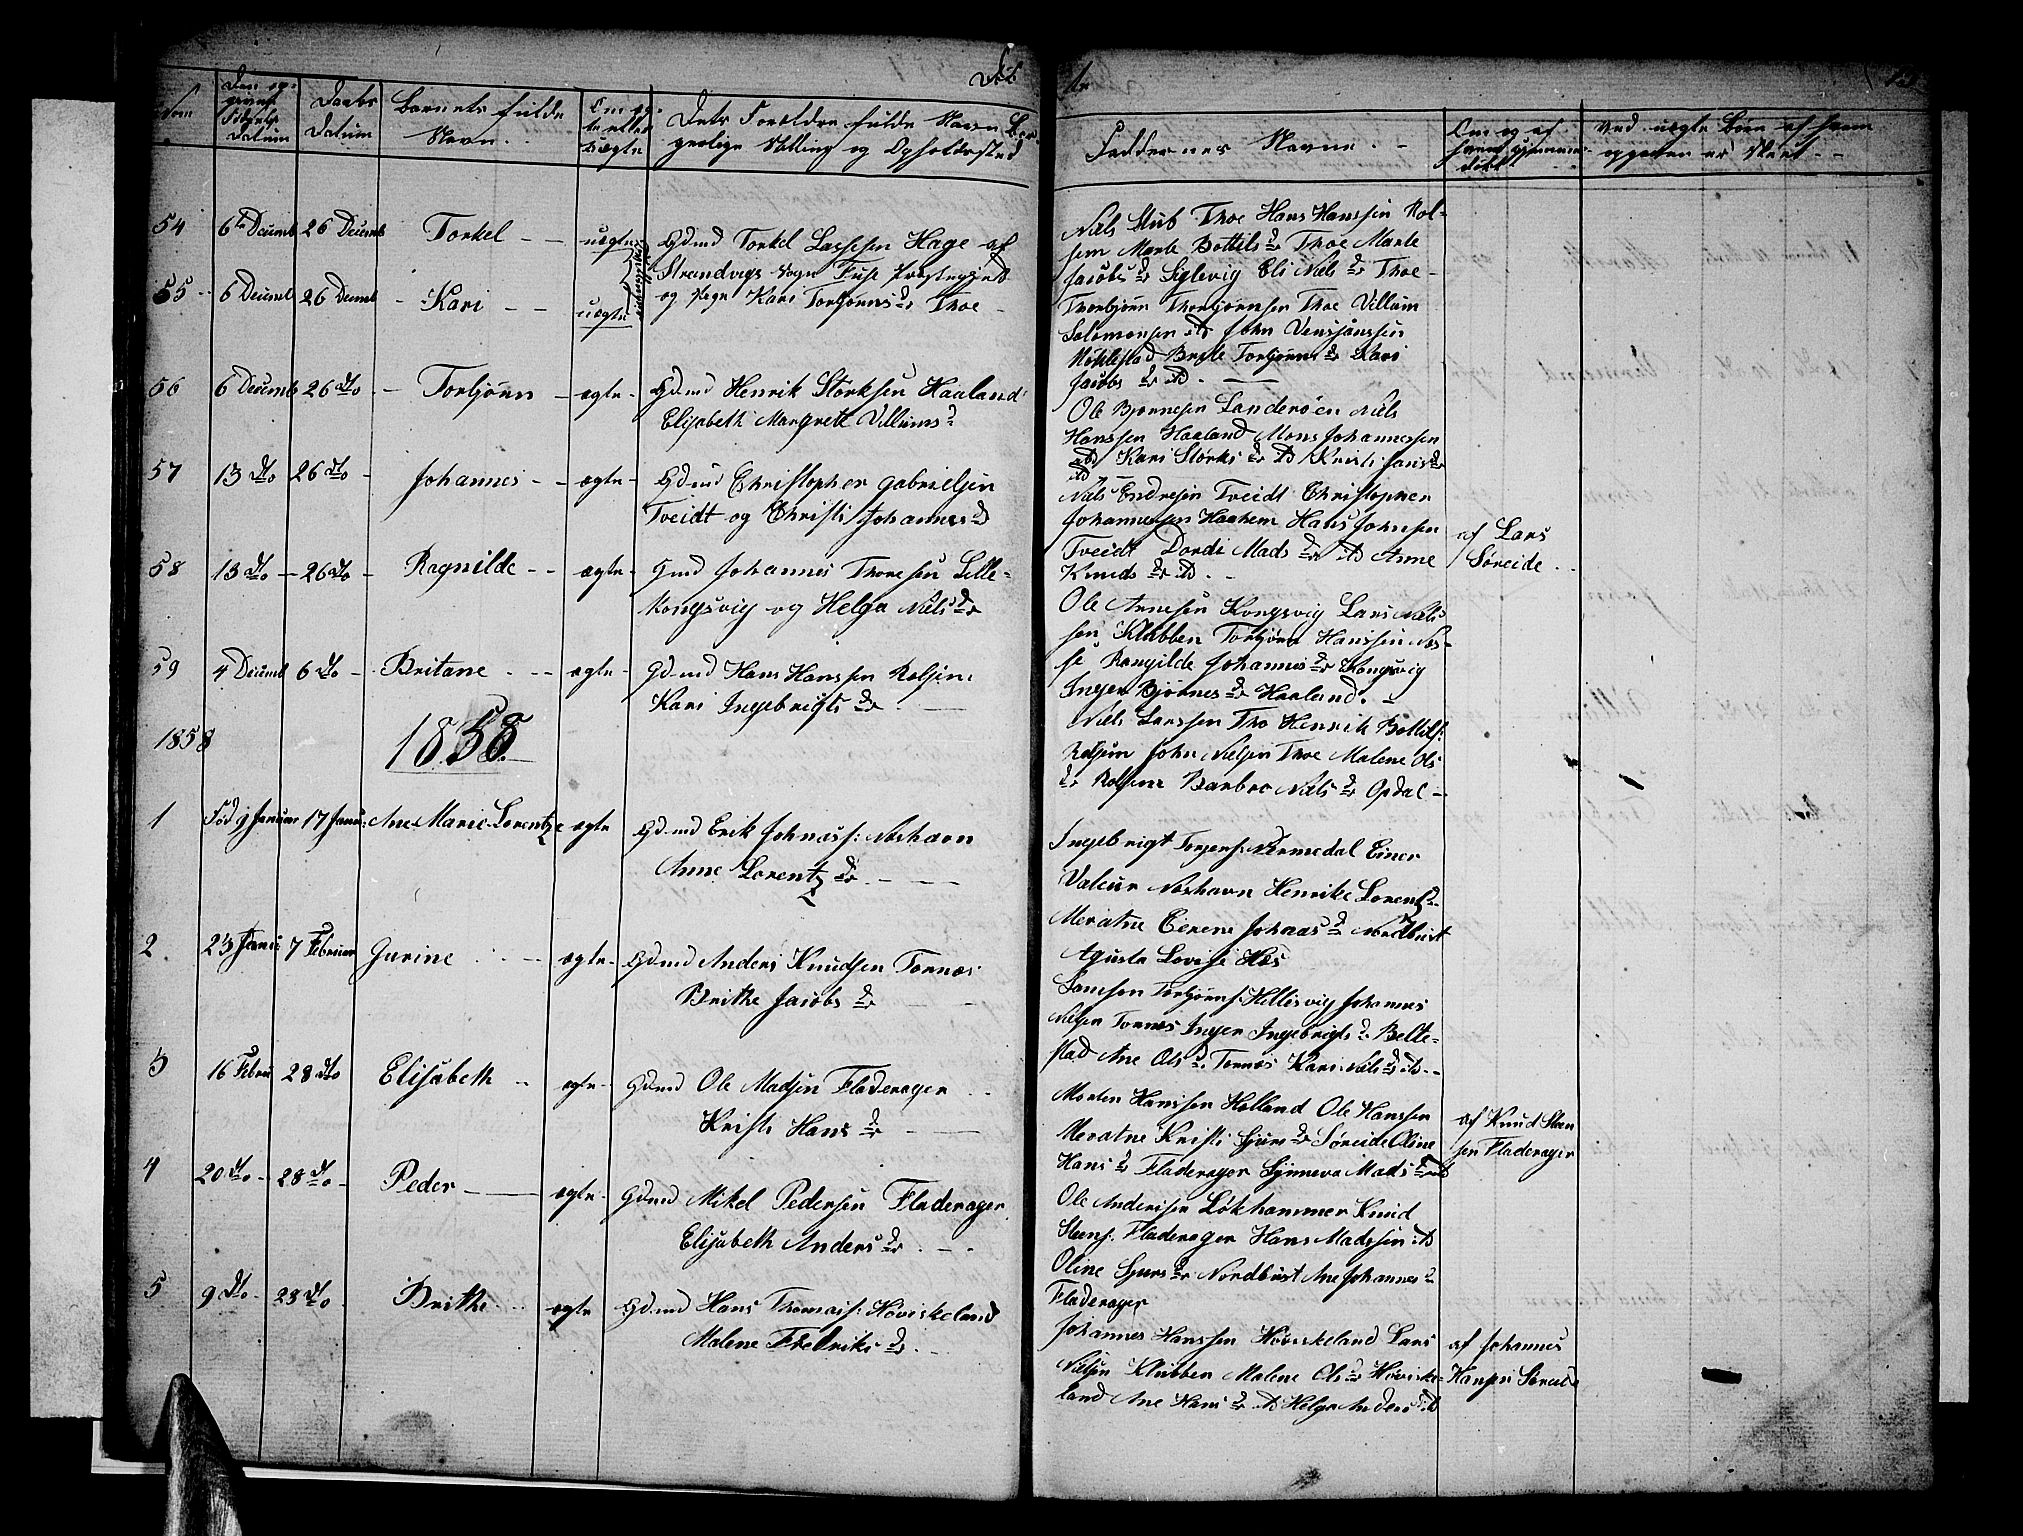 Døb
te
Num
Den op-
givne
Fødsels
Datum
Daabs
Datum
Barnets fulde
Navn.
Om æg-
te eller
Uægte
Dets Forældres fulde Navn Bor-
gerlige Stilling og Opholdssted
Faddernes Navne. -
Om og af
hvem hjemme-
døbt
Ved uægte Børn af hvem
opgaven er skeet. -
54 6te Decemb 26 Decemb Torkel uægte Gdmd Torkel Lassesen Hage af
Strandvigs Sogn Fuse Præstegjeld
55 6 Decemb 26 Decemb Kari uægte
og Pige Kari Torbjørns dr Thoe -
Niels Stub Thoe Hans Hanssen Rol-
sem Marte Bottils dr Thoe Marte
Jacobs dr Siglevig Eli Niels dr Thoe -
Thorbjørn Thorbjørnsen Thoe Villum
Salomonsen do John
Røklestad Brite Torbjørns dr Kari
Jacobs dr do. -
56 6 Decemb 26 dto - Torbjørn - ægte - Gdmd Henrik Størksen Haaland
Elisabeth Margrett Villums d
Ole Bjørnesen Landerøen Niels
Hanssen Haaland Mons Johannessen
do Kari Størks dr do Kristi Jans dr
do
57 13 dto 26 dto - Johannes - - ægte - Gdmd Christopher Gabrielsen
Tveidt og Christi Johannes d
Niels Endresen Tveidt Christopher
Johannessen Haahem Hans Johnsen
Tveidt Dordi Mads dr do Anne
Knuds dr do. -
af Lars
Søreide
58 13 dto - 26 dto - Ragnilde - - ægte - Gmd Johannes Thoresen Lille-
Kongsvig og Helga Niels dr
Ole Arnesen Kongsvig Lars Niels
sen Klubben Torbjørn Hanssen Næs-
se Rangilde Johannes dr Kongsvig
Inger Bjørnes dr Haaland. -
59 4 Decemb 6 dto - Britane - - ægte - Gdmd Hans Hanssen Rolsem
Kari Ingebrigts dr
Niels Larssen Tho Henrik Bottels:
Rolsem John Nielsen Thoe Malene Ols
dr Rolsem Barbro Niels dr Opdal -
1858 1858.
1 Fød 9 Januar 17 Janu: Ane Marie Lorentze ægte Gdmd Erik Johnass: Noshavn
Anne Lorentz dr. -
Ingebrigt Torgers: Vermedal Einer
Valeur Noshavn Henrike Lorentz d
Meratne Eerene Johnas d Nordbust
Aguste Lovise Hos
2 23 Janu 7 Februar Gurine ægte - Gdmd Anders Knudsen Tornæs
Brithe Jacobs dr
Samson Torbjørns: Hillisvig Johannes
Nielsen Tornæs Inger Ingebrigts d Belle-
stad Ane Ols d. Tornæs Kari Niels d do -
3 16 Febru 28 dto Elisabeth ægte - Gdmd Ole Madsen Fladerager
Kristi Hans dr
Morten Hanssen Holland Ole Hanssen
Meratne Kristi Sjurs dr Søreide Oline
Hans dr Fladerager Synneva Mads d do
af Knud Steen
sen Fladerager
4 20 dto - 28 dto - Peder ægte - Gdmd Mikel Pedersen Fladerager
Elisabeth Anders dr. -
Ole Anderssen Løkhammer Knud
Steens. Fladerager Hans Madssen do
Oline Sjurs dr Nordbust Ane Johannes d
Fladerager
5 9 dto - 28 dto Brithe ægte Gdmd Hans Thomass: Høviskeland
Malene Fredriks d
Johannes Hanssen Høviskeland Lars
Nielsen Klubben Malene Ols dr Høviske-
land Ane Hans dr do Helga Anders d do
af Johannes
Hansen Søreide